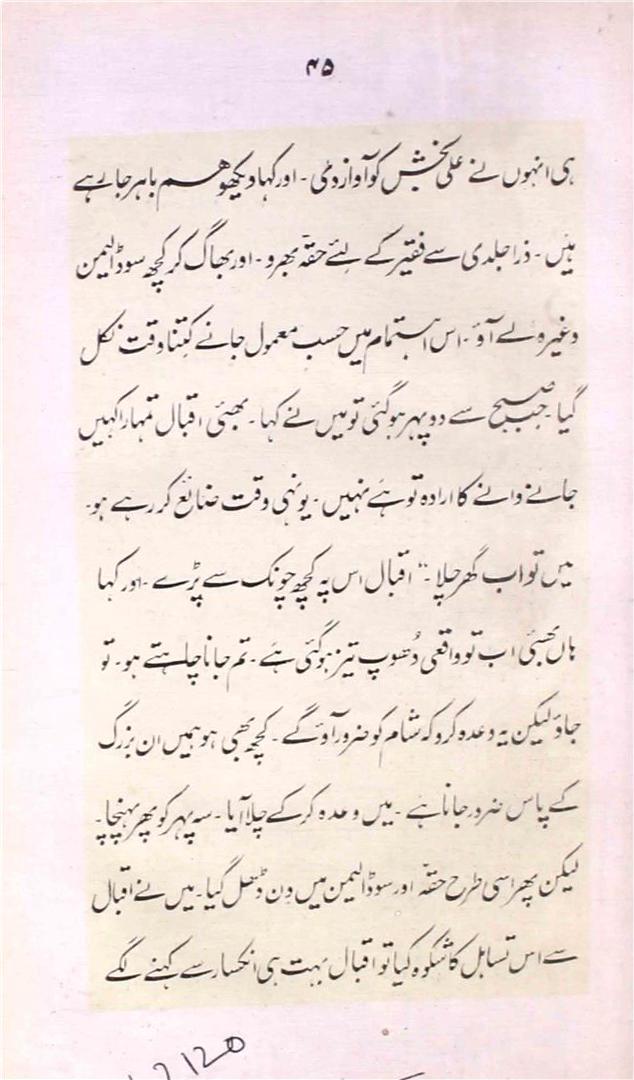 ۴۵
ہی انہوں نے علی بخش کو آواز دی ۔ اور کہا دیکھو ہم باہر جا رہے
ہیں ۔ ذرا جلدی سے فقیر کے لئے حقہ بھرو ۔ اور بھاگ کر کچھ سوڈا لیمن
وغیرہ لے آؤ ۔ اس اہتمام میں حسب معمول جانے کتنا وقت نکل
گیا ۔ جب صبح سے دوپہر ہو گئی تو میں نے کہا ۔ بھئی اقبال تمہارا کہیں
جانے وانے کا ارادہ تو ہے نہیں ۔ یونہی وقت ضائع کر رہے ہو ۔
میں تو اب گھر چلا ۔" اقبال اس پہ کچھ چونک سے پڑے ۔ اور کہا
ہاں بھئی اب تو واقعی دُھوپ تیز ہو گئی ہے ۔ تم جانا چاہتے ہو ۔ تو
جاؤ لیکن یہ وعدہ کرو کہ شام کو ضرور آؤ گے ۔ کچھ بھی ہو ہمیں ان بزرگ
کے پاس ضرور جانا ہے ۔ میں وعدہ کر کے چلا آیا ۔ سہ پہر کو پھر پہنچا ۔
لیکن پھر اسی طرح حقہ اور سوڈا لیمن میں دن ڈھل گیا ۔ میں نے اقبال
سے اس تساہل کا شکوہ کیا تو اقبال بہت ہی انکسار سے کہنے لگے
2120